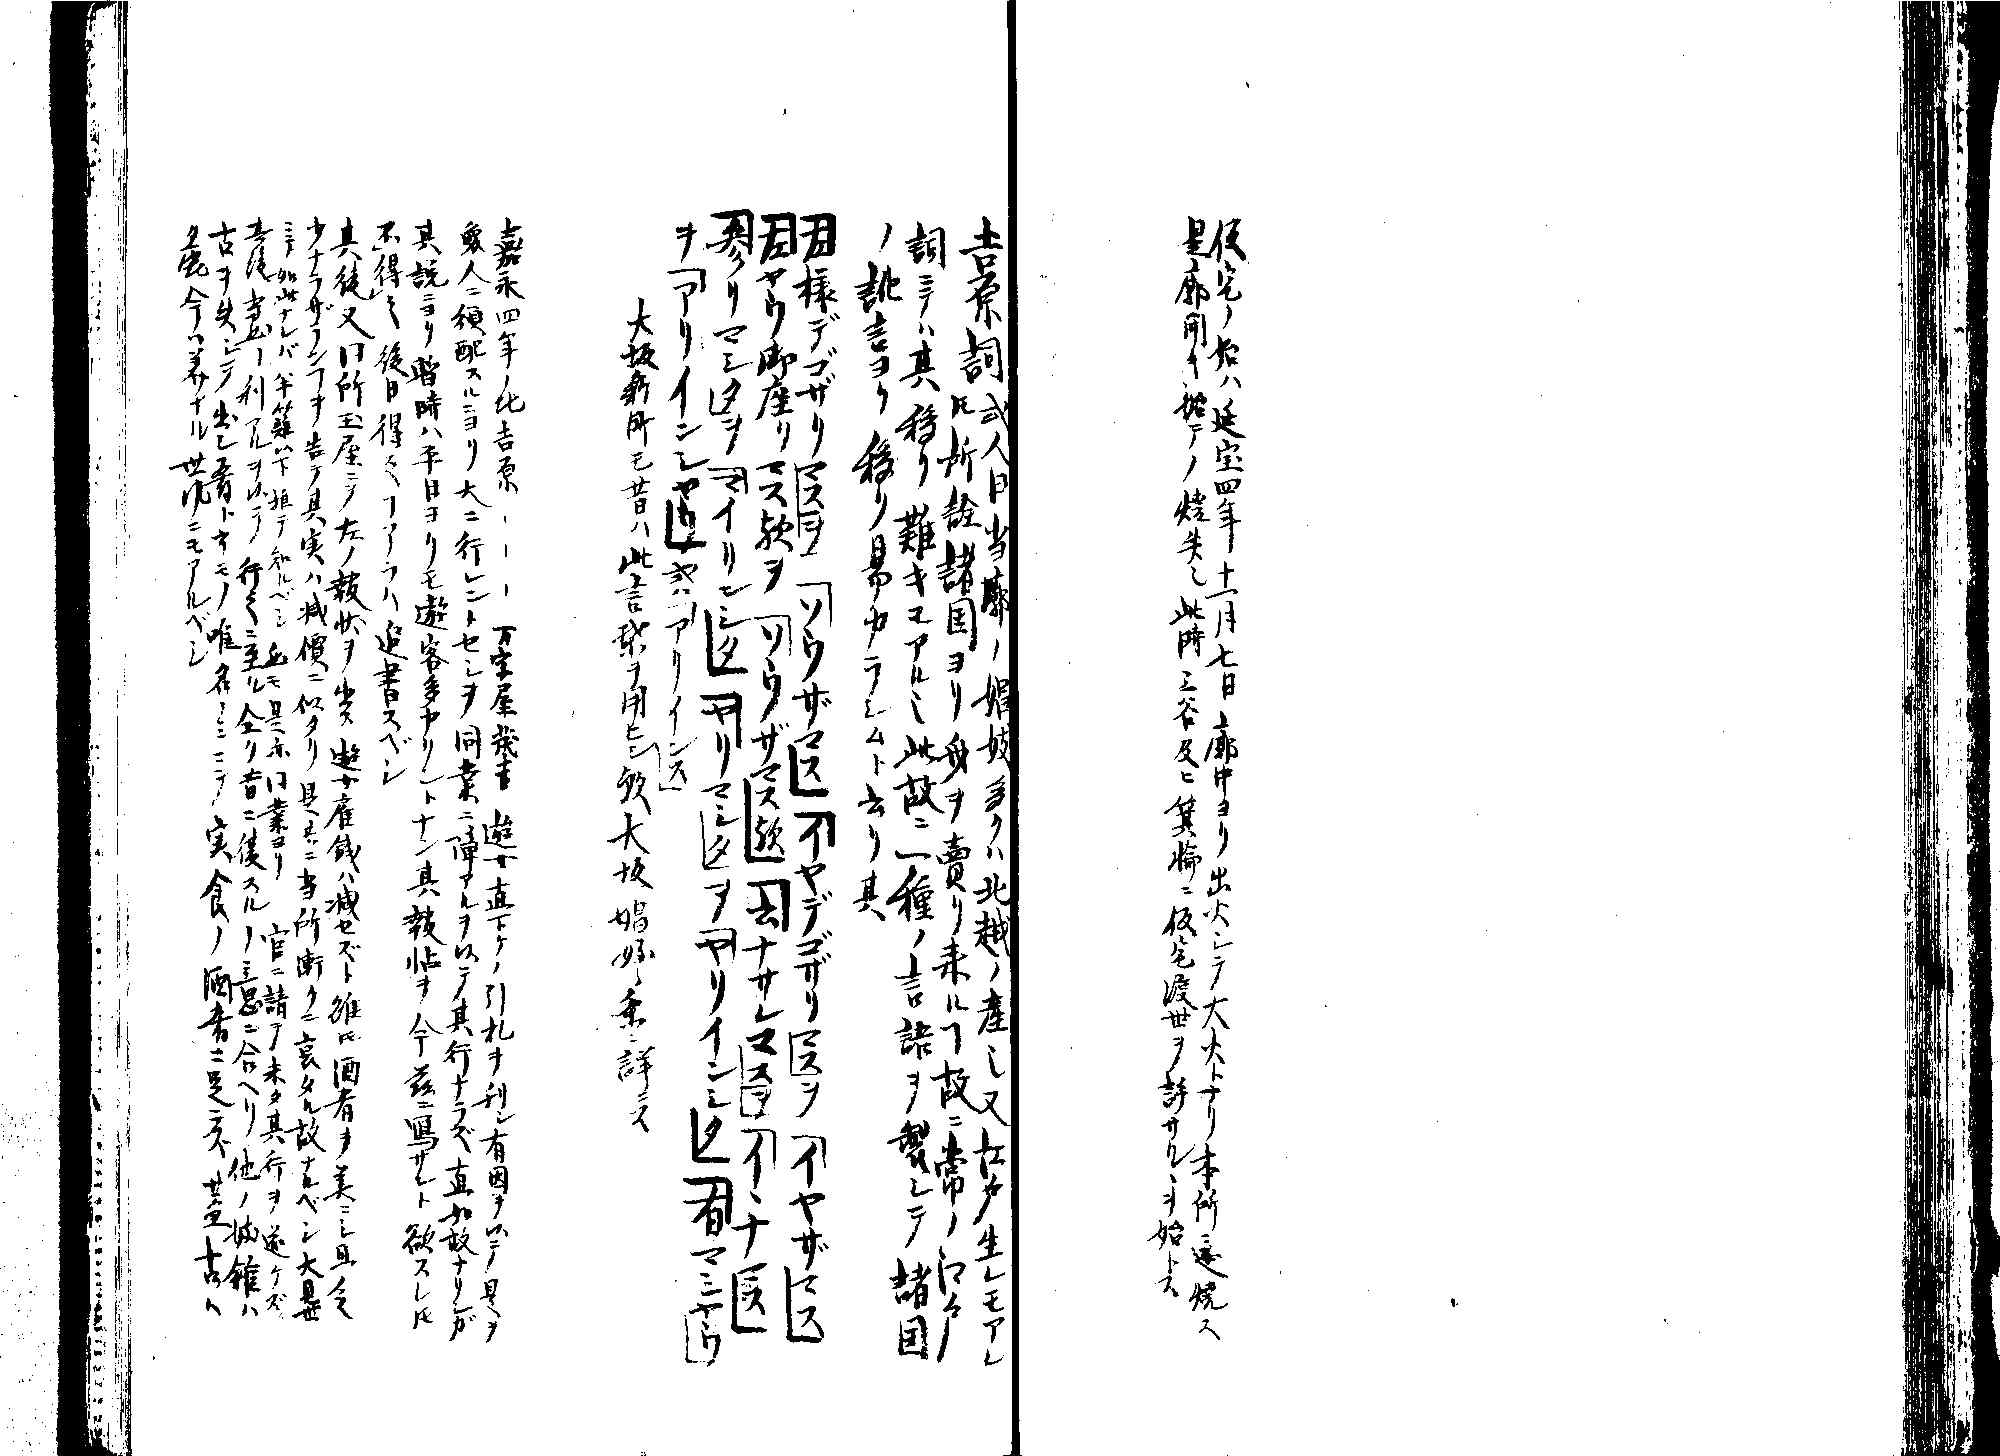 仮宅ノ始ハ延宝四年十二月七日廓中ヨリ出火シテ大火トナリ本所ニ延焼ス
是廓開キ始テノ焼失シ此時三谷及ヒ箕輪ニ仮宅渡世ヲ許サルヽヲ始トス
吉原詞或人曰当廓ノ娼妓多クハ北越ノ産ミ又江戸生レモアレ
ㇳモ所詮諸国ヨリ身ヲ賣リ来ルヿ故ニ常ノ江戸
詞ニテハ其移リ難キモアルシ此故ニ一種ノ言語ヲ製シテ諸国
ノ訛言ヨリ移リ易カラシムト云リ其
君様デゴザリマスヲ「ソウザマス「イヤデゴザリマスヲ「イヤザマス
君サウ御座リマス歟ヲ「ソウザマス歟「去ナサレマスヲ「イヽナマス
「参リマシタヲ「マイリンシタ「ヤリマシタヲ「ヤリインシタ「有マシヤウ
ヲ「アリインシヤウ或ハ「アリインス」
大坂新町モ昔ハ此言葉ヲ用ヒシ歟大坂娼妓ノ条ニ詳ニス
嘉永四年ノ比吉原ーーー万字屋茂吉遊女直下ケノ引札ヲ刊シ有因ヲ以テ是ヲ
衆人ニ領配スルニヨリ大ニ行レントセシヲ同業ニ障アルヲ以テ其行ナラズ直如故ナリシガ
其説ニヨリ暫時ハ平日ヨリモ遊客多カリシトナン其報帖ヲ今茲ニ写サント欲スレㇳモ
不得之後日得ルヿアラハ追書スベシ
其後又同所玉屋ニテ左ノ報状ヲ出ス遊女雇銭ハ減セズト雖ㇳモ酒肴ヲ美ニシ且今
少ナラザランヿヲ告テ其実ハ減價ニ似タリ是共ニ当所漸クニ衰タル故ナルベシ大見世
ニテ如此ナレバ半籬以下推テ知ルベシ然モ是亦同業ヨリ官ニ請テ未タ其行ヲ遂ケズ
其後専一利アルヲ以テ行ルヽニ至ル全リ昔ニ復スルノ意ニ合ヘリ他ノ城館ハ
古ヲ失シテ出シ肴トナモノ唯名ノミニテ実食ノ酒肴ニ足ラズ蓋古ヘ
ノ麁今ハ美ナル世風ニモアルベシ